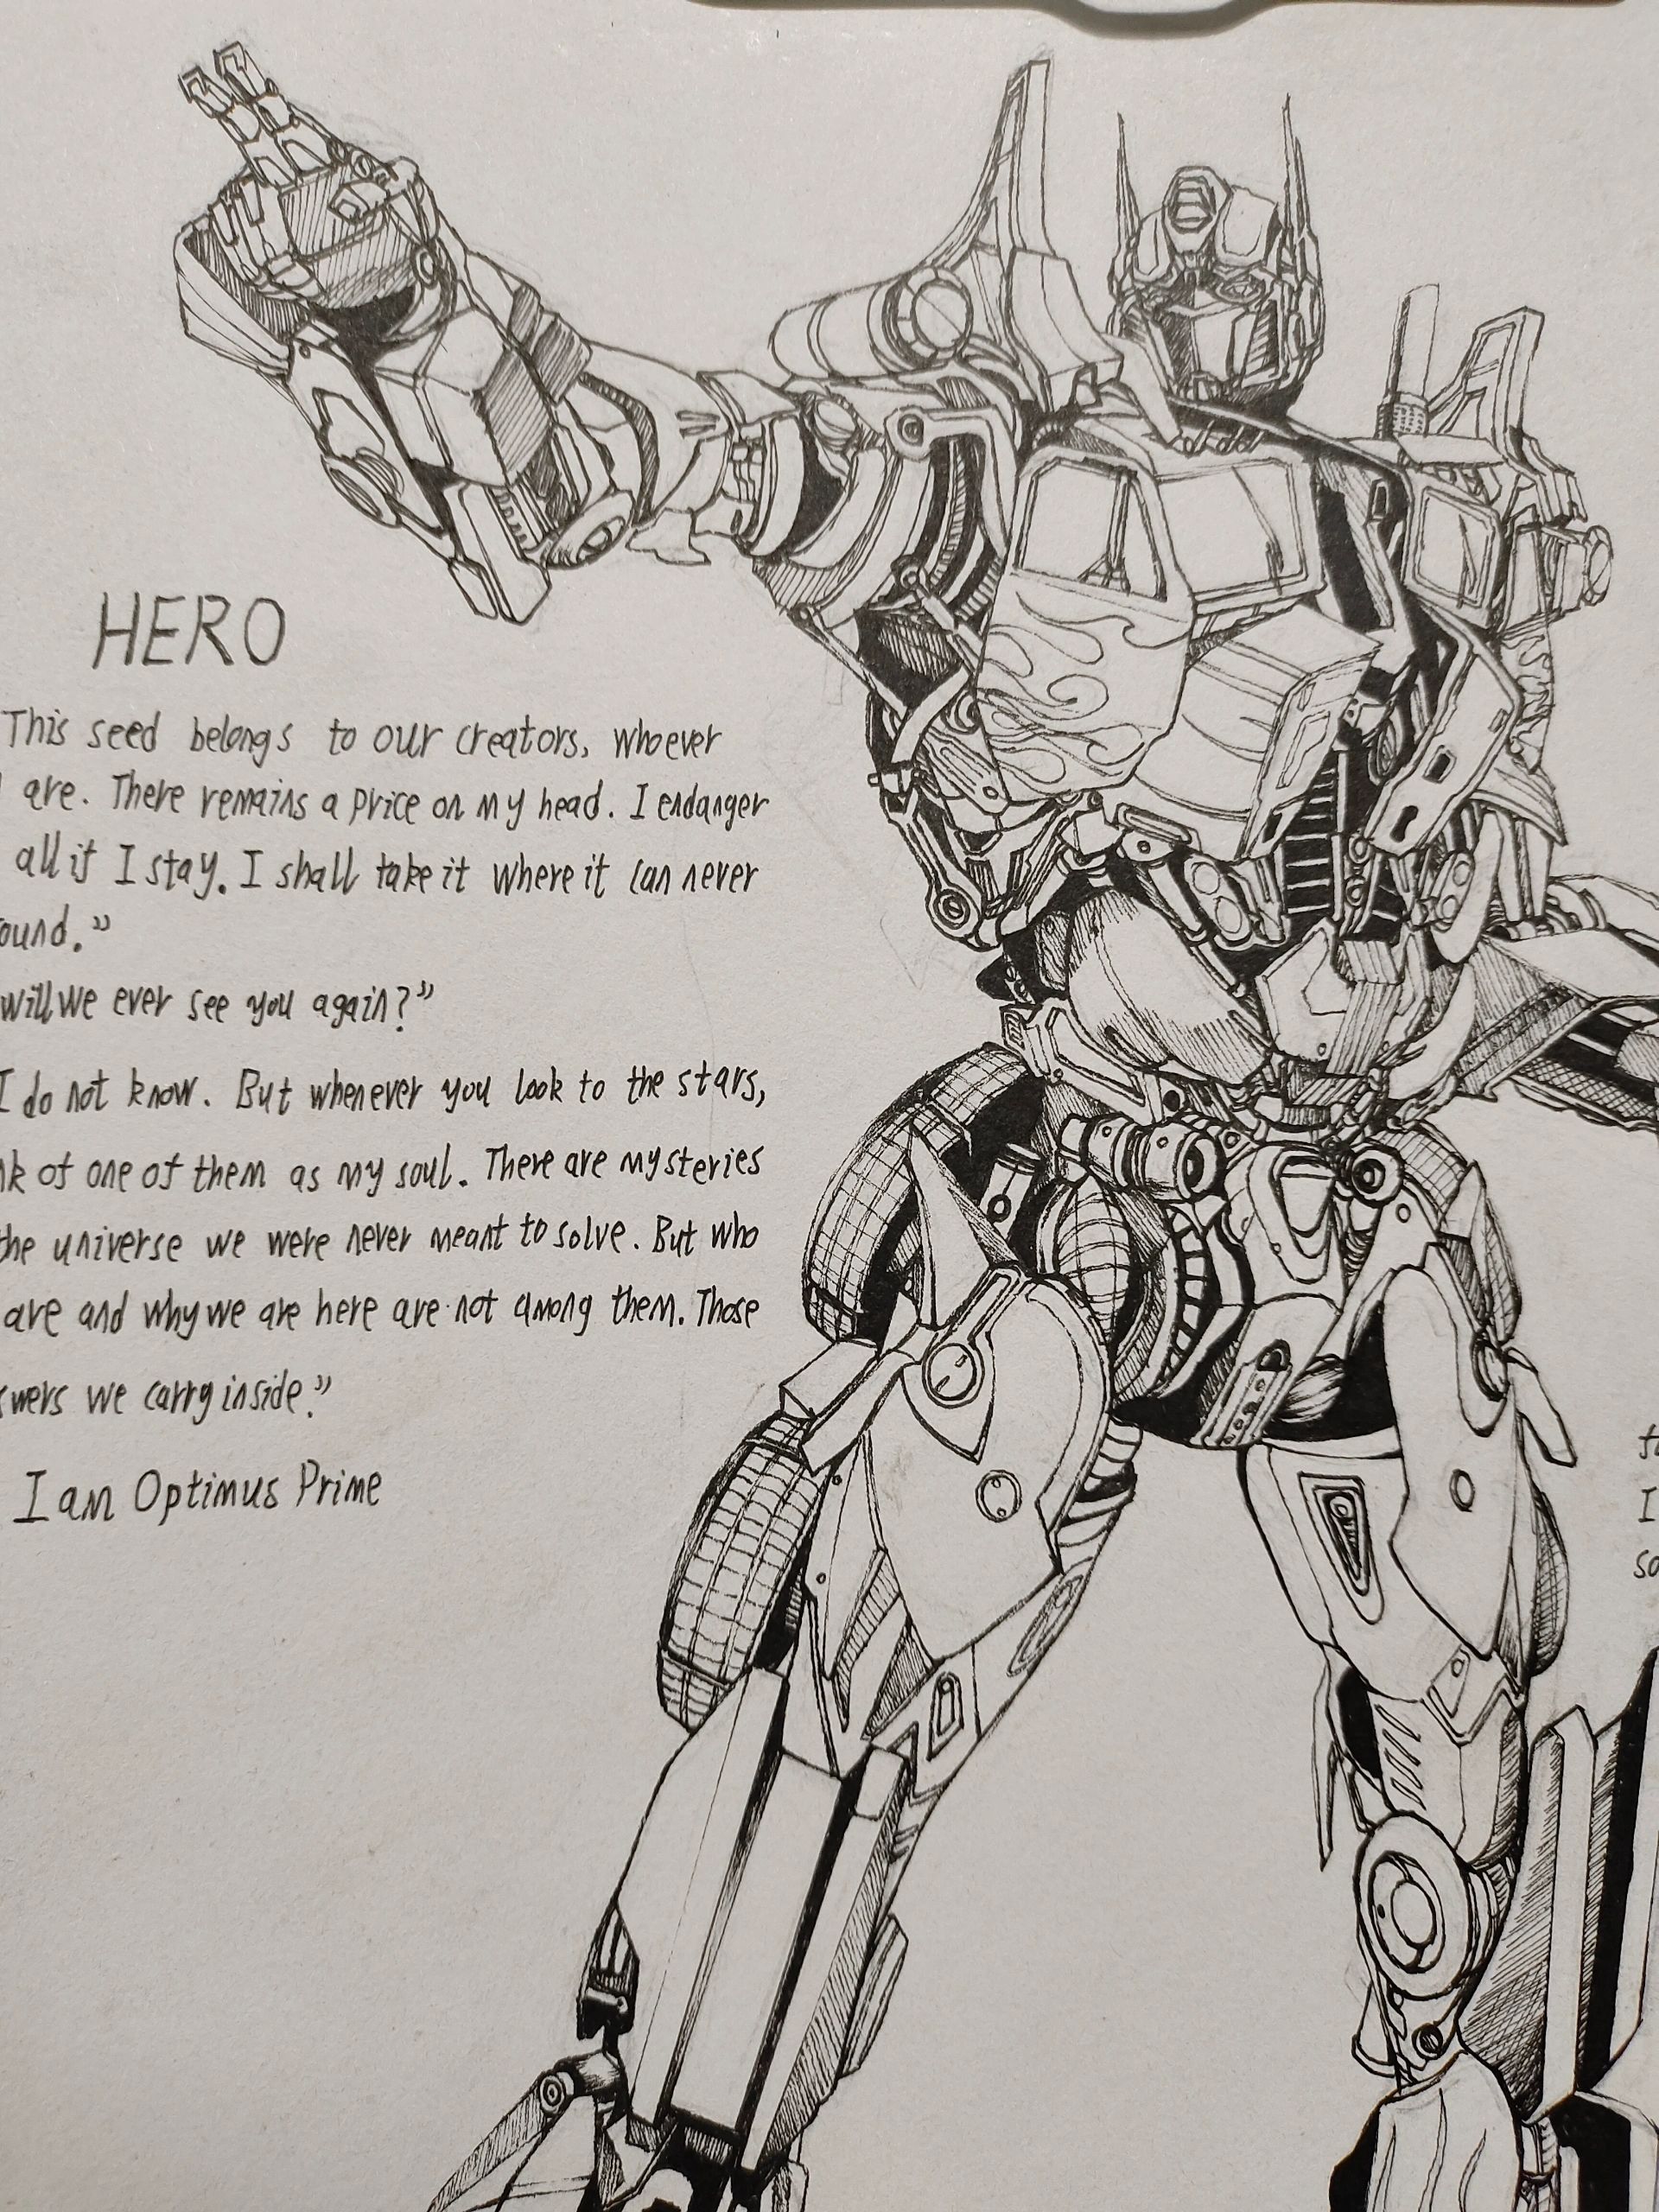 HERO
This seed belongs to our creators, whoever
are. There remains a price on my head. I endanger
all if I stay. I shall take it where it can never
ound.”
will we ever see you again?”
I do not know. But whenever you look to the stars,
nk of one of them as my soul. There are mysteries
the universe we were never meant to solve. But who
are and why we are here are not among them. Those
swers we carry inside.”
I am Optimus Prime
I
so